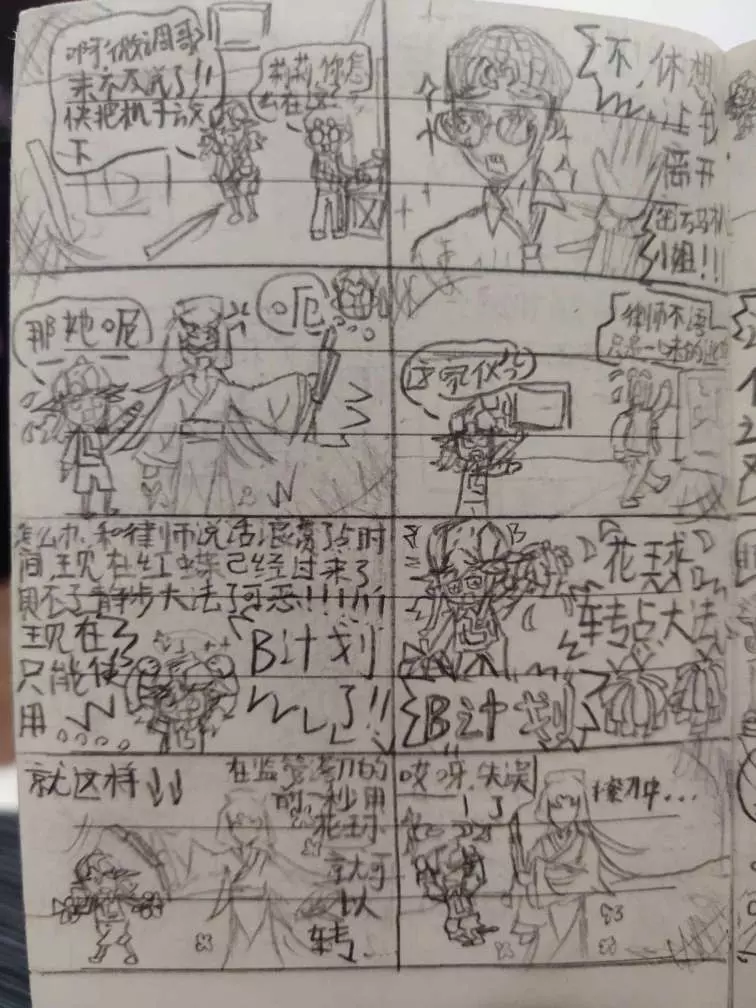 哎呀微调哥
来不及说了!!
快把机子放
下
莉莉,你怎
么在这
不,休想
让我
离开
密码机
小姐!!!
那她呢
呃
律师不语
只是一味的
这家伙
怎么办,和律师说话浪费了点时
间,现在红蝶已经过来了
用不了静步大法了可恶!!!
现在
只能使
用
B计划
了!!
花球
转点大法
B计划
就这样
在监管落刀的
前一秒用
花球
就可
以
转
哎呀,失误
了
擦刀中...